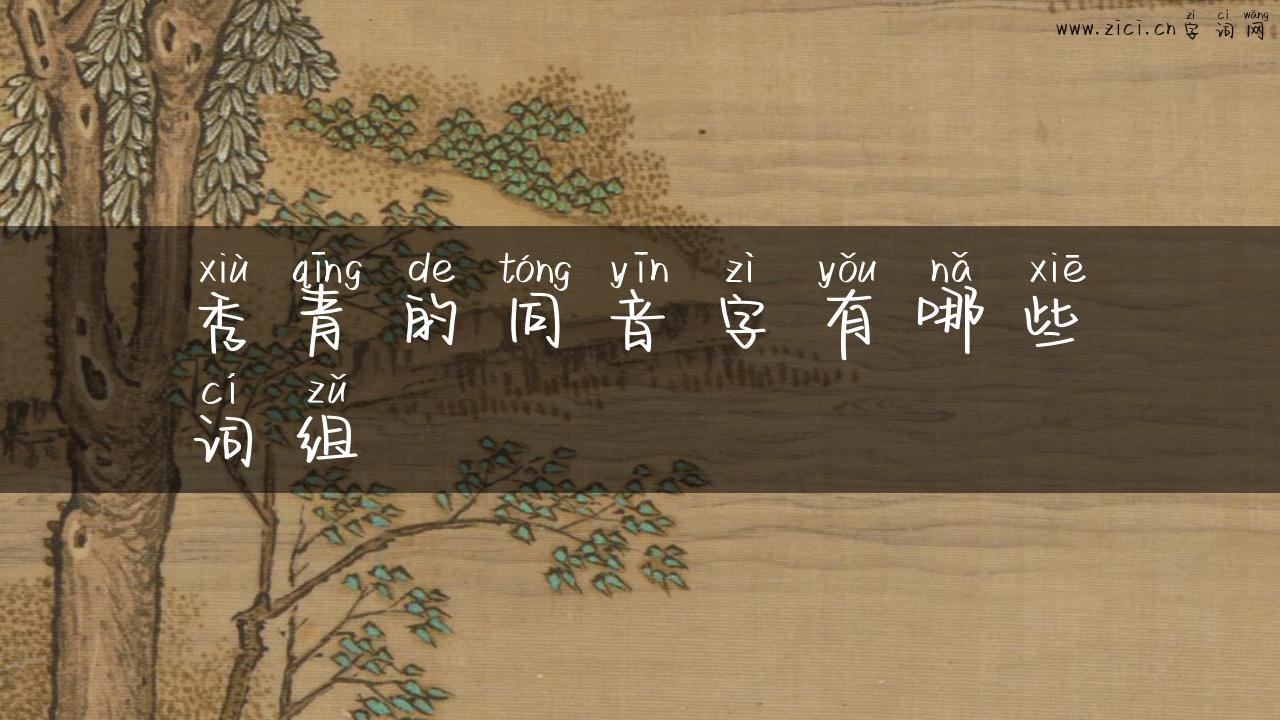 zì cí wǎng
www.zici.cn 字词网
xiù qīng de tóng yīn zì yǒu nǎ xiē
秀青的同音字有哪些
cí zǔ
词组